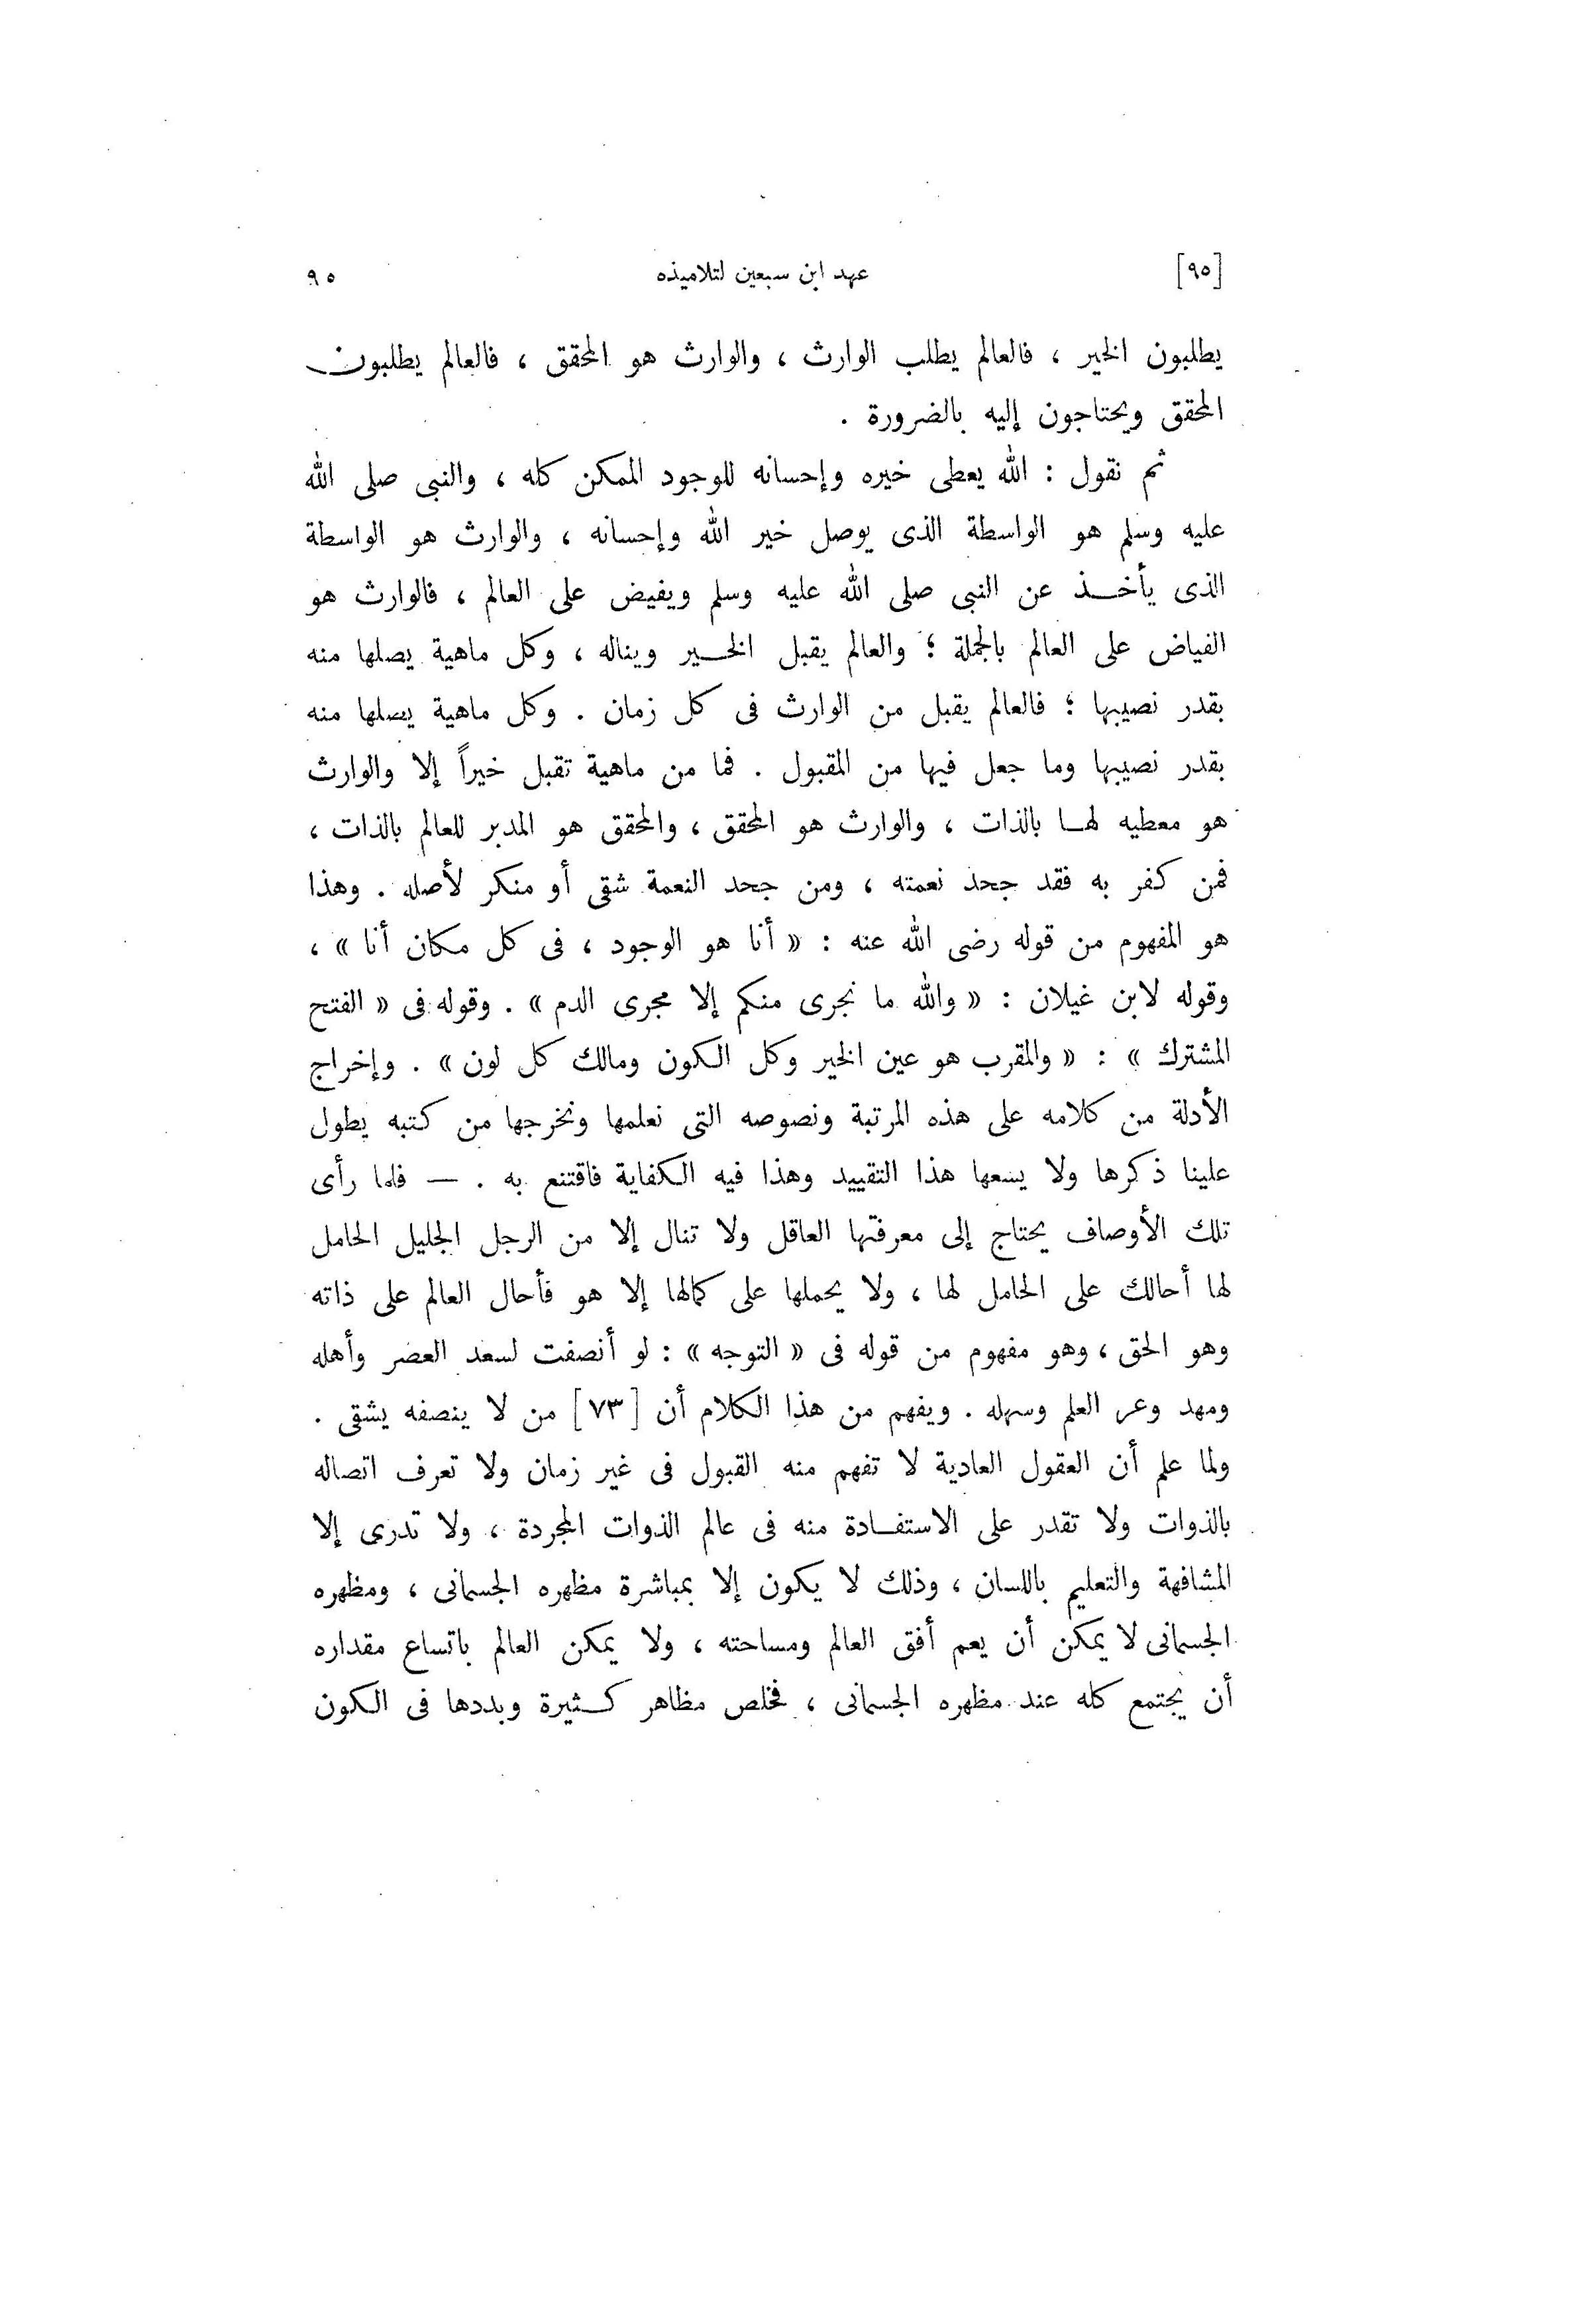 [٩٥] عهد ابن سبعين لتلاميذه ٩٥
يطلبون الخير ، فالعالم يطلب الوارث ، والوارث هو المحقق ، فالعالم يطلبون
المحقق ويحتاجون إليه بالضرورة .
ثم نقول : الله يعطى خيره وإحسانه للوجود الممكن كله ، والنبى صلى الله
عليه وسلم هو الواسطة الذى يوصل خير الله وإحسانه ، والوارث هو الواسطة
الذى يأخـذ عن النبى صلى الله عليه وسلم ويفيض على العالم ، فالوارث هو
الفياض على العالم بالجملة ؛ والعالم يقبل الخـير ويناله ، وكل ماهية يصلها منه
بقدر نصيبها ؛ فالعالم يقبل من الوارث فى كل زمان . وكل ماهية يصلها منه
بقدر نصيبها وما جعل فيها من المقبول . فما من ماهية تقبل خيراً إلا والوارث
هو معطيه لهـا بالذات ، والوارث هو المحقق ، والمحقق هو المدبر للعالم بالذات ،
فمن كفر به فقد جحد نعمته ، ومن جحد النعمة شقى أو منكر لأصله . وهذا
هو المفهوم من قوله رضى الله عنه : « أنا هو الوجود ، فى كل مكان أنا » ،
وقوله لابن غيلان : « والله ما نجرى منكم إلا مجرى الدم » . وقوله فى « الفتح
المشترك » : « والمقرب هو عين الخير وكل الكون ومالك كل لون » . وإخراج
الأدلة من كلامه على هذه المرتبة ونصوصه التى نعلمها ونخرجها من كتبه يطول
علينا ذكرها ولا يسعها هذا التقييد وهذا فيه الكفاية فاقتنع به . — فلما رأى
تلك الأوصاف يحتاج إلى معرفتها العاقل ولا تنال إلا من الرجل الجليل الحامل
لها أحالك على الحامل لها ، ولا يحملها على كمالها إلا هو فأحال العالم على ذاته
وهو الحق ، وهو مفهوم من قوله فى « التوجه » : لو أنصفت لسعد العصر وأهله
ومهد وعر العلم وسهله . ويفهم من هذا الكلام أن [٧٣] من لا ينصفه يشقى .
ولما علم أن العقول العادية لا تفهم منه القبول فى غير زمان ولا تعرف اتصاله
بالذوات ولا تقدر على الاستفـادة منه فى عالم الذوات المجردة ، ولا تدرى إلا
المشافهة والتعليم باللسان ، وذلك لا يكون إلا بمباشرة مظهره الجسمانى ، ومظهره
الجسمانى لا يمكن أن يعم أفق العالم ومساحته ، ولا يمكن العالم باتساع مقداره
أن يجتمع كله عند مظهره الجسمانى ، فخلص مظاهر كـثيرة وبددها فى الكون